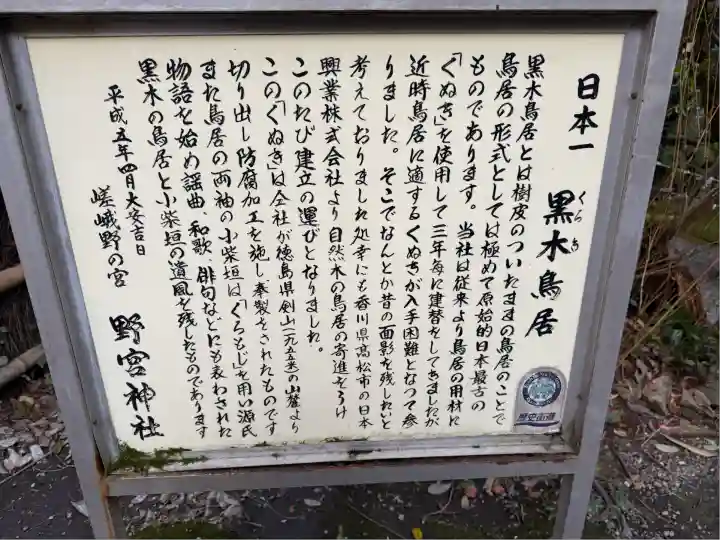 日本一
黒木鳥居
くろき
黒木鳥居とは樹皮のついたままの鳥居のことで
鳥居の形式としては極めて原始的日本最古の
ものであります。当社は従来より鳥居の用材に
「くぬぎ」を使用して三年毎に建替をしてきましたが
近時鳥居に適するくぬぎが入手困難となって参
りました。そこでなんとか昔の面影を残したいと
考えておりました処幸にも香川県高松市の日本
興業株式会社より自然木の鳥居の寄進をうけ
このたび建立の運びとなりました。
この「くぬぎ」は仝社が徳島県剣山(一九五五米)の山麓より
切り出し防腐加工を施し奉製をされたものです
また鳥居の両袖の小柴垣は「くろもじ」を用い源氏
物語を始め謡曲、和歌、俳句などにも表わされた
黒木の鳥居と小柴垣の遺風を残したものであります
平成五年四月大安吉日
嵯峨野の宮
野宮神社
歴史街道